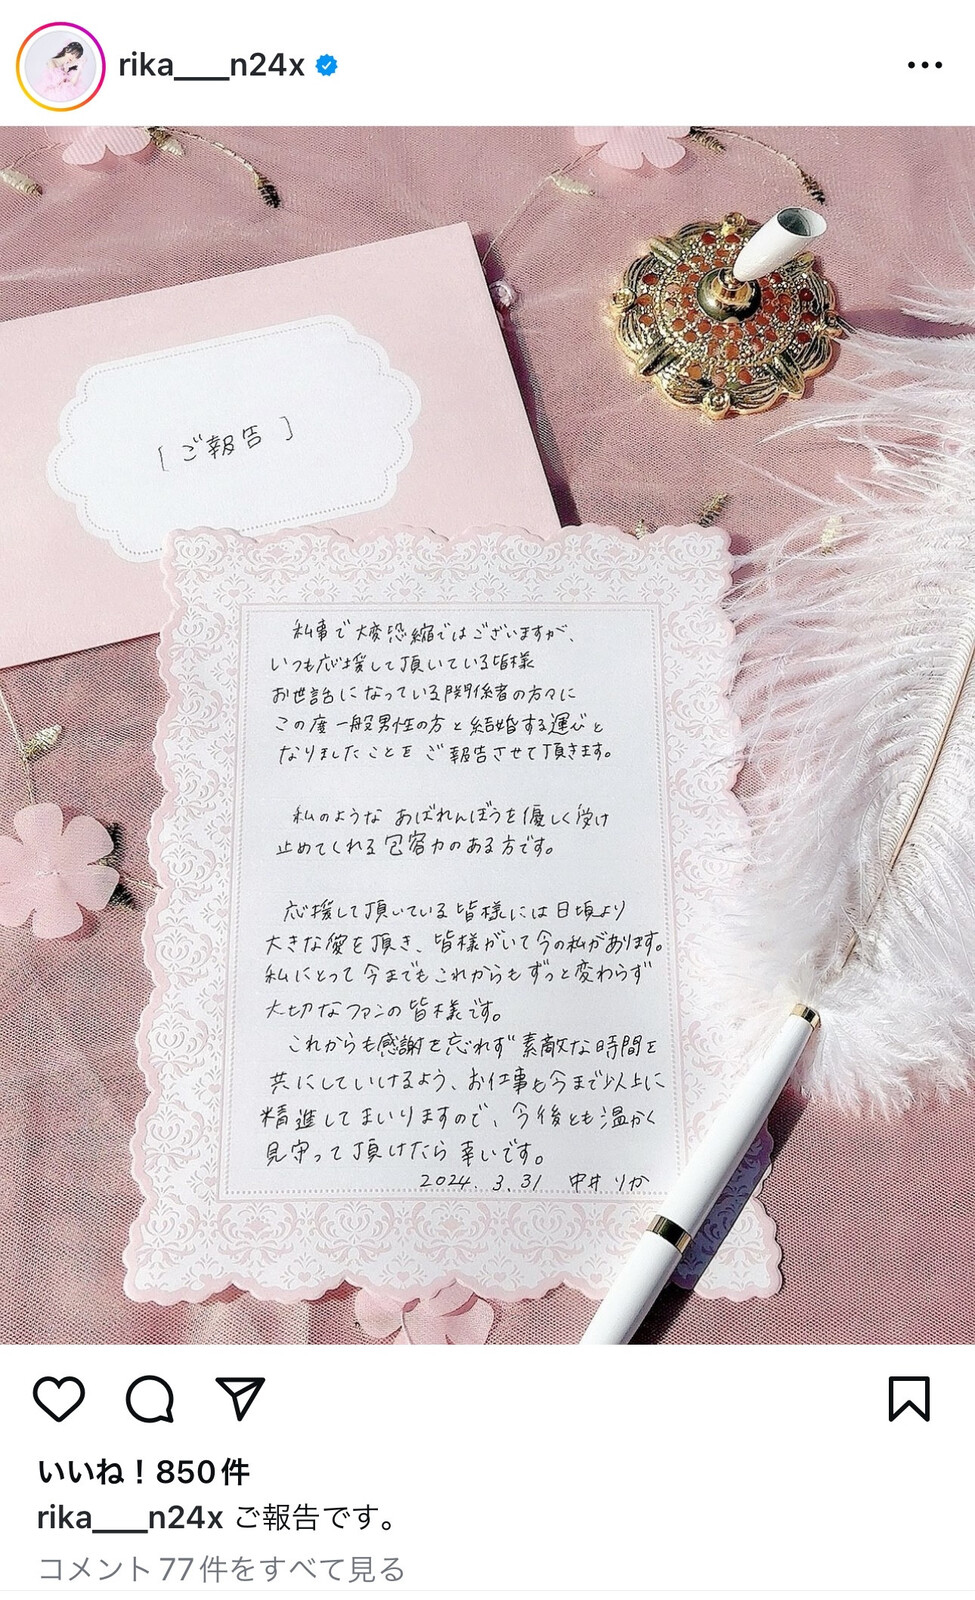 rika___n24x
[ ご報告 ]
私事で大変恐縮ではございますが、
いつも応援して頂いている皆様
お世話になっている関係者の方々に
この度一般男性の方と結婚する運びと
なりましたことをご報告させて頂きます。
私のようなあばれんぼうを優しく受け
止めてくれる包容力のある方です。
応援して頂いている皆様には日頃より
大きな愛を頂き、皆様がいて今の私があります。
私にとって今までもこれからもずっと変わらず
大切なファンの皆様です。
これからも感謝を忘れず素敵な時間を
共にしていけるよう、お仕事も今まで以上に
精進してまいりますので、今後とも温かく
見守って頂けたら幸いです。
2024. 3. 31 中井りか
いいね！850件
rika___n24x ご報告です。
コメント77件をすべて見る